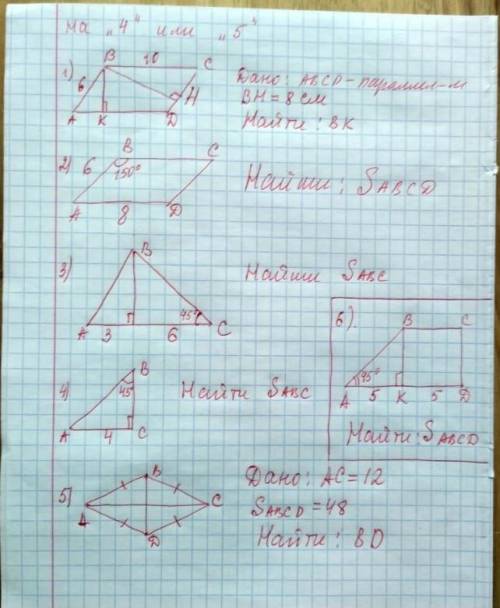 на „4" или „5"
1)
B 10 C
6
H
A K D
Дано: ABCD - параллел-м
BH = 8 см
Найти: BK
2)
B C
6 150°
A 8 D
Найти: SABCD
3)
B
45°
A 3 6 C
Найти SABC
4)
B
45
A 4 C
Найти SABC
6).
B C
45°
A 5 K 5 D
Найти: SABCD
5)
B
A C
D
Дано: AC = 12
SABCD = 48
Найти: BD